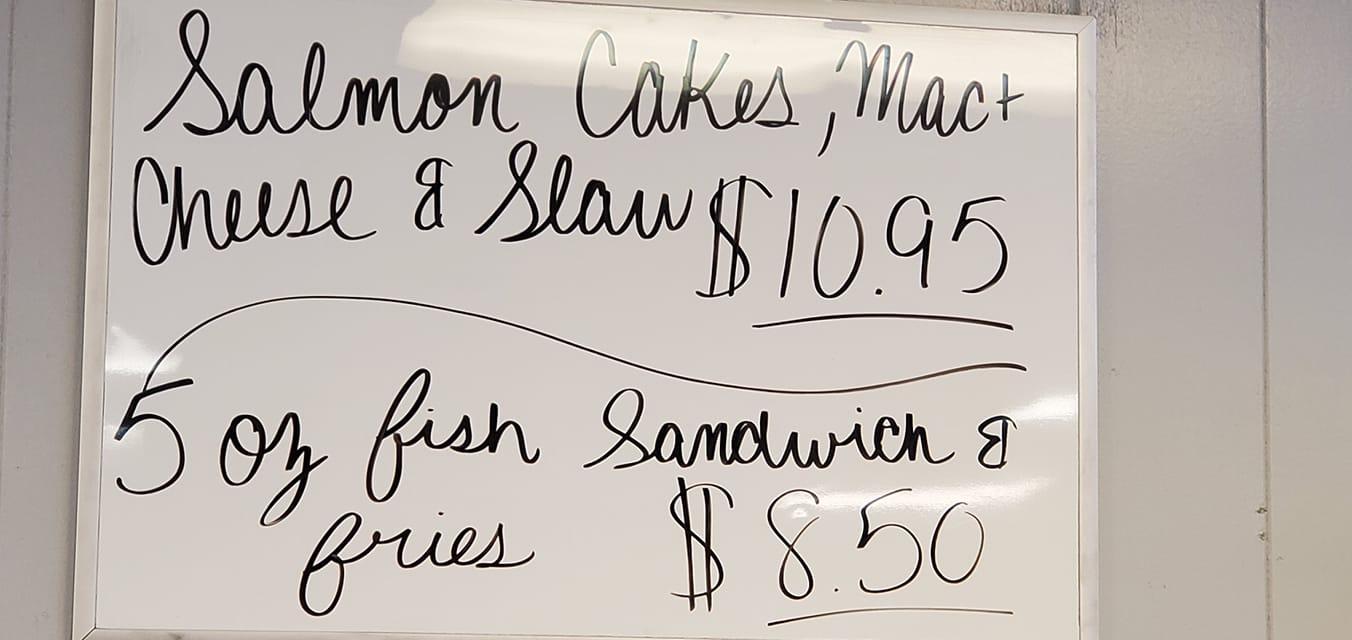 Salmon Cakes, Mac +
Cheese & Slaw $10.95
5 oz fish Sandwich &
fries $8.50